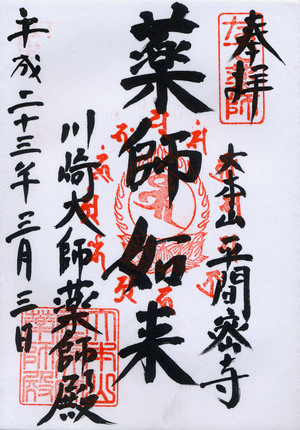 奉拝
大本山平間密寺
薬師如来
川崎大師薬師殿
平成二十三年三月三日